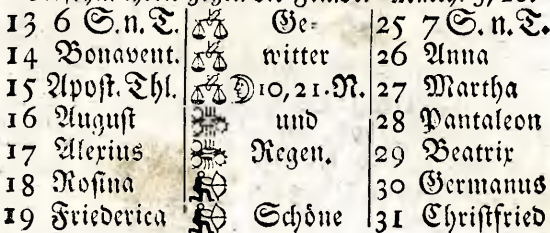 13 6 S. n. T. Ge- 25 7 S. n. T.
14 Bonavent. witter 26 Anna
15 Apost. Thl. 10, 21. N. 27 Martha
16 August und 28 Pantaleon
17 Alexius Regen. 29 Beatrix
18 Rosina 30 Germanus
19 Friederica Schöne 31 Christfried